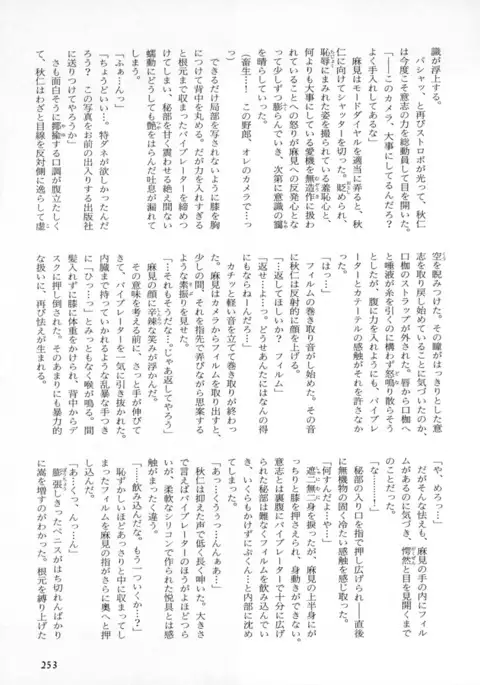 識が浮上する。
パシャッ、と再びストロボが光って、秋仁
は今度こそ意志の力を総動員して目を開いた。
「――このカメラ、大事にしてるんだろ？
よく手入れしてあるな」
麻見はモードダイヤルを適当に弄ると、秋
仁に向けてシャッターを切った。貶められ、
恥辱にまみれた姿を撮られている羞恥心と、
何よりも大事にしている愛機を無造作に扱わ
れていることへの怒りが麻見への反発心とな
って少しずつ膨らんでいき、次第に意識の靄
を晴らしていった。
(畜生…！　この野郎、オレのカメラで…っ
っ)
できるだけ局部を写されないように膝を胸
につけて背中を丸める。だが力を入れすぎる
と根元まで収まったバイブレーターを締めつ
けてしまい、秘部を甘く震わせる絶え間ない
蠕動にどうしても艶をはらんだ吐息が漏れて
しまう。
「ふぁ…んっ」
「ちょうどいい…。特ダネが欲しかったんだ
ろう？　この写真をお前の出入りする出版社
に送りつけてやろうか」
さも面白そうに揶揄する口調が腹立たしく
て、秋仁はわざと目線を反対側に逸らして虚
空を睨みつけた。その瞳がはっきりとした意
志を取り戻し始めていることに気づいたのか、
口枷のストラップが外された。唇から口枷へ
と唾液が糸を引くのに構わず怒鳴り散らそう
としたが、腹に力を入れようにも、バイブレ
ーターとカテーテルの感触がそれを許さなか
った。
「はっ…」
フィルムの巻き取り音がし始めた。その音
に秋仁は反射的に顔を上げる。
「…返してほしいか？　フィルム」
「返せ…よ…っ。どうせあんたにはなんの得
にもならねーんだろ…」
カチッと軽い音を立てて巻き取りが終わっ
た。麻見はカメラからフィルムを取り出すと、
少しの間、それを指先で弄びながら思案する
ような素振りを見せた。
「…それもそうだな…。じゃあ返してやろう」
麻見の顔に辛辣な笑みが浮かんだ。
その意味を考える前に、さっと手が伸びて
きて、バイブレーターを一気に引き抜かれた。
「ひっ…っ」とみっともなく喉が鳴る。間
髪入れずに膝に体重をかけられ、背中からデ
スクに押し倒された。そのあまりにも暴力的
な扱いに、再び怯えが生まれる。
「や、めろっ…」
だがそんな怯えも、麻見の手の内にフィル
ムがあるのに気づき、愕然と目を見開くまで
のことだった。
「な……っ！」
秘部の入り口を指で押し広げられ――直後
に無機物の固く冷たい感触を感じ取った。
「何すんだよ…や…っ」
遮二無二身を捩ったが、麻見の上半身にが
っちりと膝を押さえられ、身動きができない。
意志とは裏腹にバイブレーターで十分に広げ
られた秘部は難なくフィルムを飲み込んでい
き、いくらもかけずにぷくん…と内部に沈め
てしまった。
「あっ…くうぅっ…んんぁあ…」
秋仁は抑えた声で低く長く呻いた。大きさ
で言えばバイブレーターのほうがよほどつら
いが、柔軟なシリコンで作られた悦具とは感
触がまったく違う。
「……飲み込んだな。もう一ついくか…？」
恥ずかしいほどあっさりと中に収まってし
まったフィルムを麻見の指がさらに奥へと押
し込んだ。
「あ…くっ、んっ…ん」
膨張しきったペニスがはち切れんばかり
に嵩を増すのがわかった。根元を縛り上げた
253